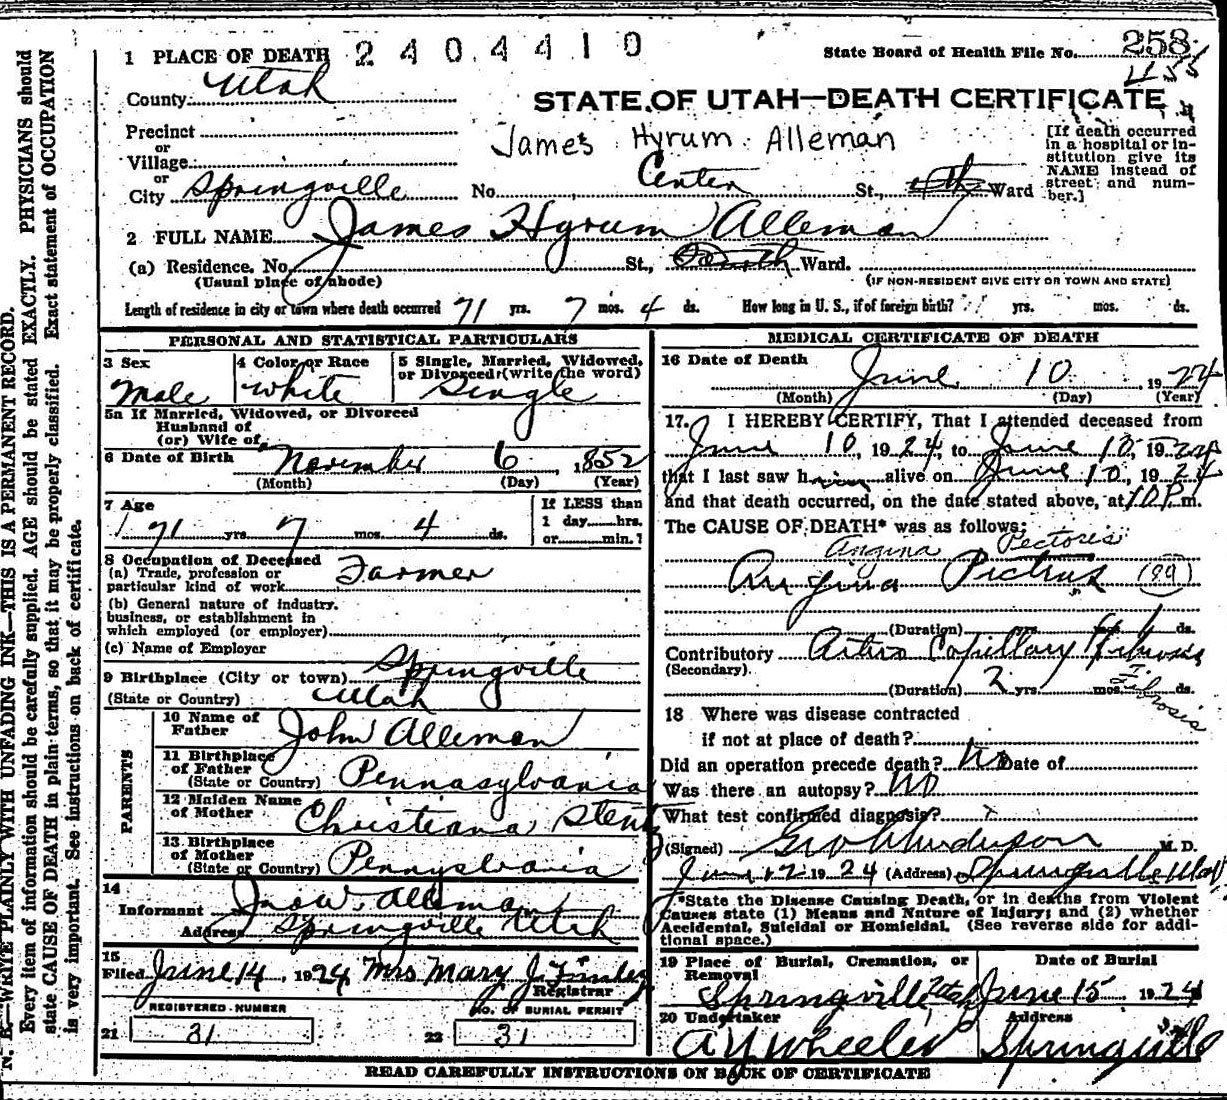 1 PLACE OF DEATH 2404410 State Board of Health File No. 258
455
County Utah
STATE OF UTAH—DEATH CERTIFICATE
Precinct
or
Village
or
City Springville No. Center St., Ward
James Hyrum Alleman
[If death occurred
in a hospital or in-
stitution give its
NAME instead of
street and num-
ber.]
2 FULL NAME James Hyrum Alleman
(a) Residence. No. St., Fourth Ward.
(Usual place of abode) (IF NON-RESIDENT GIVE CITY OR TOWN AND STATE)
Length of residence in city or town where death occurred 71 yrs. 7 mos. 4 ds. How long in U. S., if of foreign birth? yrs. mos. ds.
PERSONAL AND STATISTICAL PARTICULARS
3 Sex Male
4 Color or Race White
5 Single, Married, Widowed,
or Divorced (write the word)
Single
5a If Married, Widowed, or Divorced
Husband of
(or) Wife of
6 Date of Birth November 6, 1852
(Month) (Day) (Year)
7 Age
71 yrs. 7 mos. 4 ds.
If LESS than
1 day......hrs.
or......min.?
8 Occupation of Deceased
(a) Trade, profession or
particular kind of work Farmer
(b) General nature of industry.
business, or establishment in
which employed (or employer)
(c) Name of Employer
9 Birthplace (City or town) Springville
(State or Country) Utah
PARENTS
10 Name of
Father John Alleman
11 Birthplace
of Father
(State or Country) Pennasylvania
12 Maiden Name
of Mother Christiana Stentz
13 Birthplace
of Mother
(State or Country) Pennyslvania
14
Informant Jno W. Alleman
Address Springville Utah
15
Filed June 14, 1924 Mrs Mary J. Finley
Registrar
REGISTERED NUMBER
21 31
NO. OF BURIAL PERMIT
22 31
MEDICAL CERTIFICATE OF DEATH
16 Date of Death
June 10, 1924
(Month) (Day) (Year)
17. I HEREBY CERTIFY, That I attended deceased from
June 10, 1924, to June 10, 1924
that I last saw him alive on June 10, 1924
and that death occurred, on the date stated above, at 10 P. m.
The CAUSE OF DEATH* was as follows:
Angina Pectoris
Angina Pictrus (89)
(Duration) yrs. mos. ds.
Contributory Artiro Capillary Fibrosis
(Secondary) Fibrosis
(Duration) 2 yrs. mos. ds.
18 Where was disease contracted
if not at place of death?
Did an operation precede death? No Date of
Was there an autopsy? No
What test confirmed diagnosis?
(Signed) Geo Anderson M. D.
June 12 1924 (Address) Springville Utah
*State the Disease Causing Death, or in deaths from Violent
Causes state (1) Means and Nature of Injury; and (2) whether
Accidental, Suicidal or Homicidal. (See reverse side for addi-
tional space.)
19 Place of Burial, Cremation, or
Removal
Springville Utah
Date of Burial
June 15 1924
20 Undertaker
A Y Wheeler
Address
Springville
READ CAREFULLY INSTRUCTIONS ON BACK OF CERTIFICATE
N. B.—WRITE PLAINLY WITH UNFADING INK—THIS IS A PERMANENT RECORD.
Every item of information should be carefully supplied. AGE should be stated EXACTLY. PHYSICIANS should
state CAUSE OF DEATH in plain terms, so that it may be properly classified. Exact statement of OCCUPATION
is very important. See instructions on back of certificate.